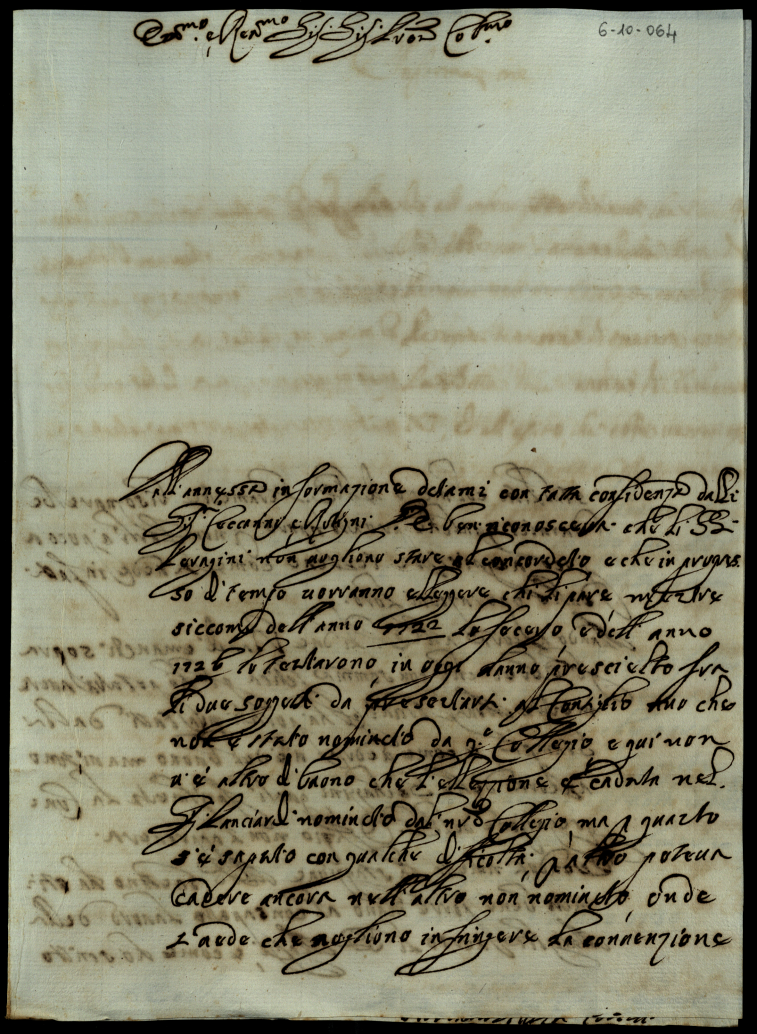 Em.mo e Rev.mo Sig. Sig. Pron Col.mo
6-10-064
All'annessa informazione datami con tutta confidenza dalli
Sig. Ceccano e Rubini. ben riconoscerà che li SS.
Perugini non vogliono stare al concordato e che in progres
so di tempo vorranno eleggere chi li pare mentre
siccome dell'anno 1722 lo fecero e dell'anno
1726 lo tentarono in oggi hanno prescielto fra
li due soggetti da presentarsi al Consiglio uno che
non è stato nominato da q.o Collegio e qui non
v'è altro di buono che l'elezzione è caduta nel
Sig. Lanciardi nominato dal n.ro Collegio, ma p quanto
s'è saputo con qualche dificoltà. p altro poteva
cadere ancora nell'altro non nominato, onde
vede che vogliono infringere la convenzione